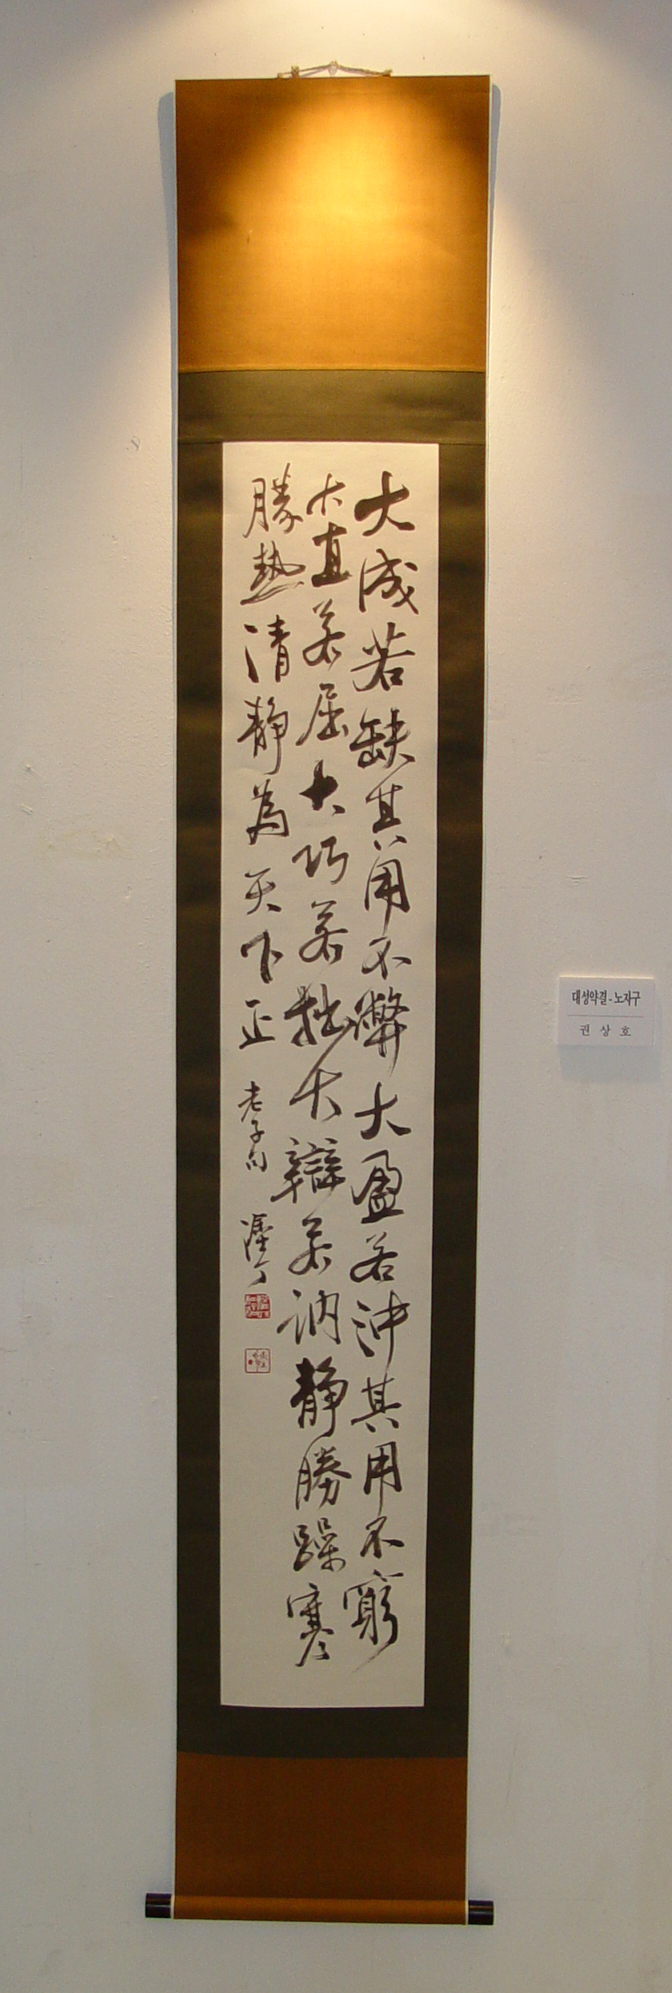 大成若缺其用不弊大盈若沖其用不窮
大直若屈大巧若拙大辯若訥靜勝躁寒
勝熱清靜為天下正
老子句
대성약결-노자구
권상호